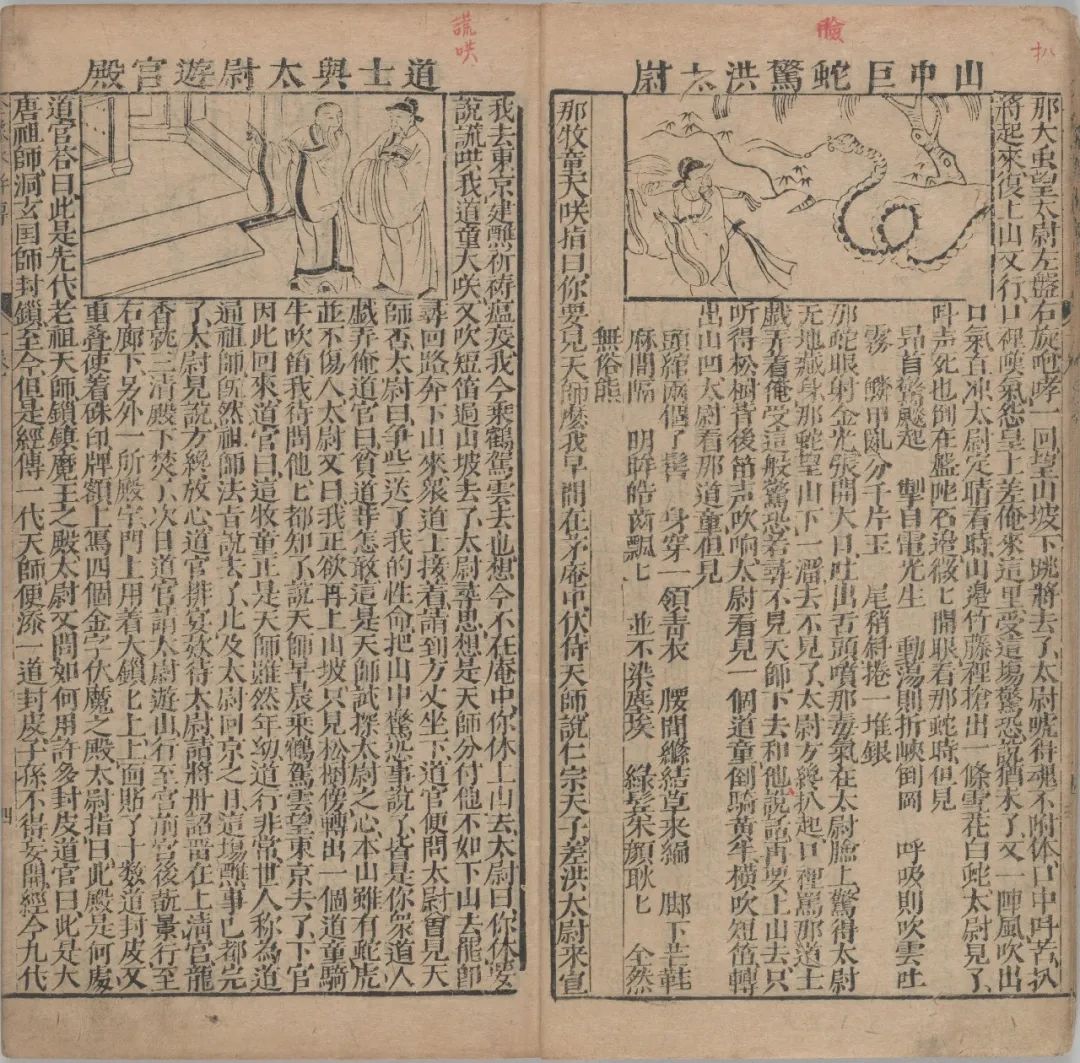 扒
臉
山中巨蛇驚洪太尉
那大虫望太尉左盤右旋咆哮一回望山坡下跳將去了太尉唬得魂不附体口中呌苦扒
將起來復上山又行口裡嘆氣怨皇上差俺來這里受這塲驚恐說猶未了又一陣風吹出
口氣直冲太尉定睛看時山邊竹藤裡搶出一條雪花白蛇太尉見了
呌声死也倒在盤陀石邉微匕開眼看那蛇時但見
昂首驚飈起 掣目電光生 動蕩則折峽倒岡 呼吸則吹雲吐
霧 鱗甲亂分千片玉 尾稍斜捲一堆銀
那蛇眼射金光張開大口吐出舌頭噴那毒氣在太尉臉上驚得太尉
无地藏身那蛇望山下一溜去不見了太尉方纔扒起口裡罵那道士
戲弄着俺受這般驚恐若尋不見天師下去和他說話再要上山去只
听得松樹背後笛声吹响太尉看見一個道童倒騎黃牛橫吹短笛轉
出山凹太尉看那道童但見
頭綰兩個了髻 身穿一領青衣 腰間縧結草来編 脚下芒鞋
麻間隔 明眸皓齒飄匕 並不染塵埃 綠髮朱顔耿匕 全然
無俗態
那牧童大咲指曰你要見天師麽我早間在茅庵中伏侍天師說仁宗天子差洪太尉来宣
謊哄
道士與太尉遊宮殿
我去東京建醮祈祷瘟疫我今乘鶴駕雲去也想今不在庵中你休上山去太尉曰你休要
說謊哄我道童大咲又吹短笛過山坡去了太尉尋思想是天師分付他不如下山去罷即
尋回路奔下山來衆道士接着請到方丈坐下道官便問太尉曾見天
師否太尉曰争些送了我的性命把山中驚恐事說了皆是你衆道人
戲弄俺道官曰貧道等怎敢這是天師試探太尉之心本山雖有蛇虎
並不傷人太尉又曰我正欲再上山坡只見松樹傍轉出一個道童騎
牛吹笛我待問他匕都知了說天師早辰乘鶴駕雲望東京去了下官
因此回來道官曰這牧童正是天師雖然年幼道行非常世人称為道
通祖師旣然祖師法旨說去了比及太尉回京之日這塲醮事已都完
了太尉見說方纔放心道官排宴欵待太尉請將丹詔畱在上清宮龍
香就三清殿下焚了次日道官請太尉遊山行至宮前宮後翫景行至
右廊下另外一所殿宇門上用着大鎖匕上上面貼了十數道封皮又
重叠使着硃印牌額上寫四個金字伏魔之殿太尉指曰此殿是何處
道官荅曰此是先代老祖天師鎖鎮魔王之殿太尉又問如何用許多封皮道官曰此是大
唐祖師洞玄国師封鎖至今但是經傳一代天師便添一道封皮子孫不得妄開經今九代
四